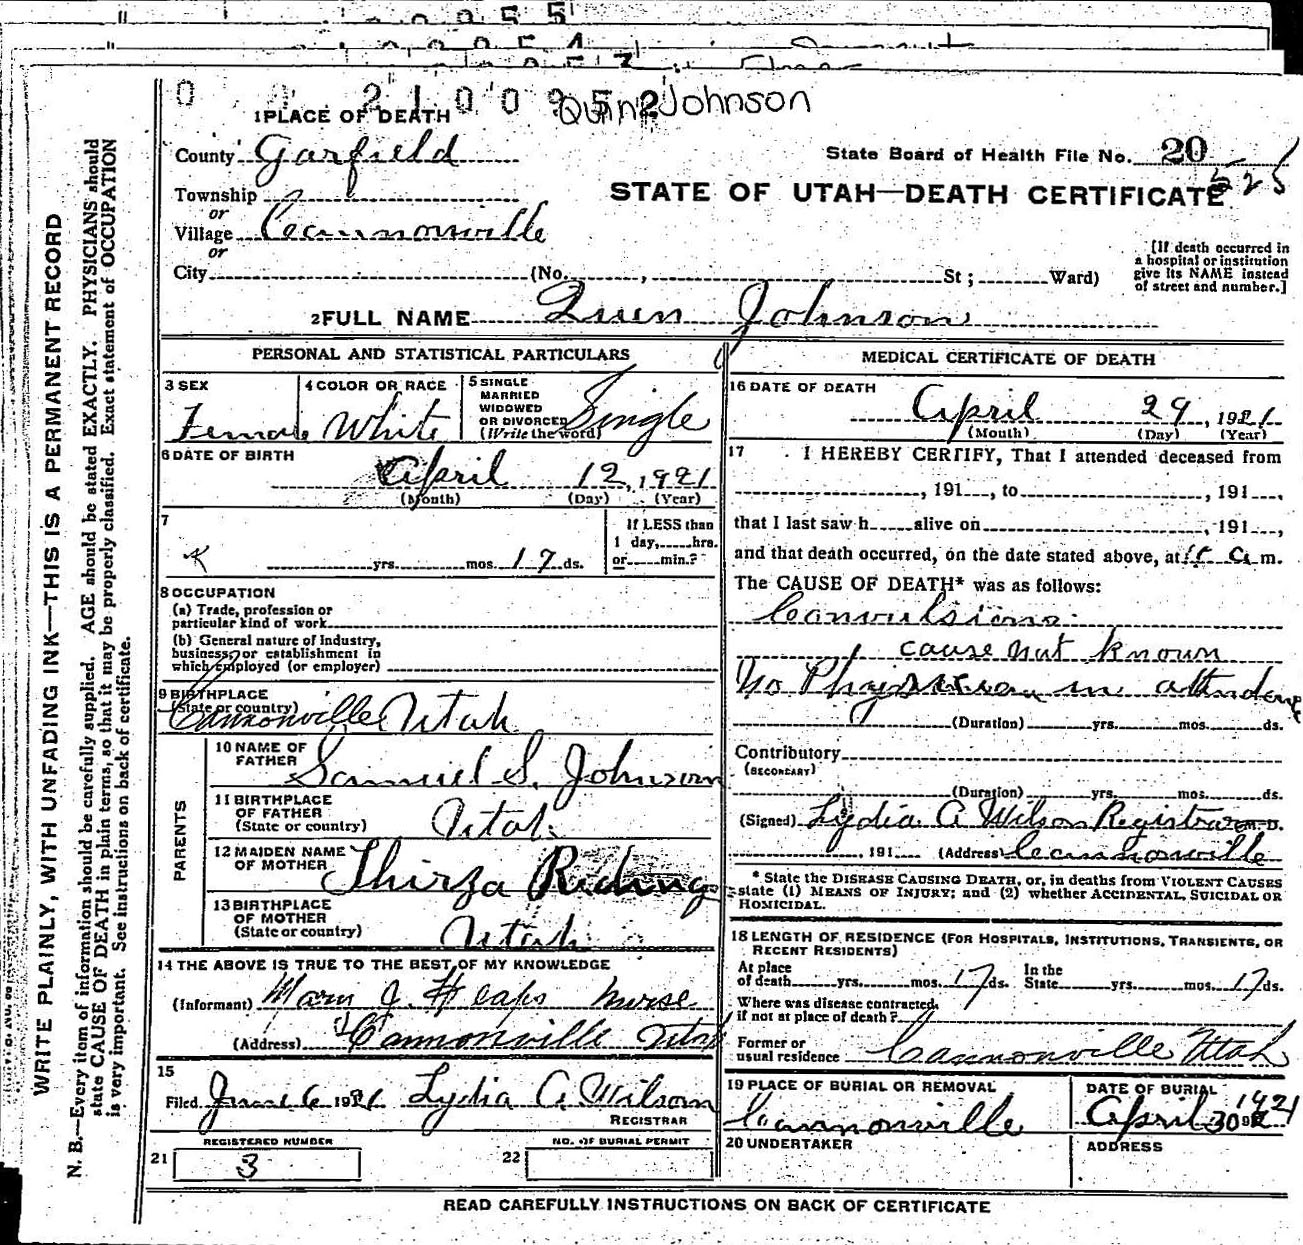 5 5
5 4
5 3
0 2 1 0 0 9 5 2 Quinn Johnson
1 PLACE OF DEATH
County Garfield
State Board of Health File No. 20
525
STATE OF UTAH—DEATH CERTIFICATE
Township
or
Village Cannonville
or
City (No. , St ; Ward)
[If death occurred in
a hospital or institution
give its NAME instead
of street and number.]
2 FULL NAME Quen Johnson
PERSONAL AND STATISTICAL PARTICULARS
3 SEX
Female
4 COLOR OR RACE
White
5 SINGLE
MARRIED
WIDOWED
OR DIVORCED
(Write the word)
Single
6 DATE OF BIRTH
April 12, 1921
(Month) (Day) (Year)
7
yrs. mos. 17 ds.
If LESS than
1 day, hrs.
or min.?
8 OCCUPATION
(a) Trade, profession or
particular kind of work
(b) General nature of industry,
business, or establishment in
which employed (or employer)
9 BIRTHPLACE
(State or country)
Cannonville Utah
PARENTS
10 NAME OF
FATHER
Samuel S. Johnson
11 BIRTHPLACE
OF FATHER
(State or country)
Utah
12 MAIDEN NAME
OF MOTHER
Thirza Riding
13 BIRTHPLACE
OF MOTHER
(State or country)
Utah
14 THE ABOVE IS TRUE TO THE BEST OF MY KNOWLEDGE
(Informant) Mary J. Heaps nurse
(Address) Cannonville Utah
15
Filed June 6 1921 Lydia A. Wilson
REGISTRAR
REGISTERED NUMBER
21 3
NO. OF BURIAL PERMIT
22
MEDICAL CERTIFICATE OF DEATH
16 DATE OF DEATH
April 29, 1921
(Month) (Day) (Year)
17 I HEREBY CERTIFY, That I attended deceased from
, 191 , to , 191 ,
that I last saw h alive on , 191 ,
and that death occurred, on the date stated above, at a m.
The CAUSE OF DEATH* was as follows:
Convulsions
cause not known
No Physician in attendance
(Duration) yrs. mos. ds.
Contributory
(SECONDARY)
(Duration) yrs. mos. ds.
(Signed) Lydia A Wilson Registrar M. D.
, 191 (Address) Cannonville
* State the DISEASE CAUSING DEATH, or, in deaths from VIOLENT CAUSES
state (1) MEANS OF INJURY; and (2) whether ACCIDENTAL, SUICIDAL OR
HOMICIDAL.
18 LENGTH OF RESIDENCE (FOR HOSPITALS, INSTITUTIONS, TRANSIENTS, OR
RECENT RESIDENTS)
At place
of death yrs. mos. 17 ds.
In the
State yrs. mos. 17 ds.
Where was disease contracted,
if not at place of death?
Former or
usual residence Cannonville Utah
19 PLACE OF BURIAL OR REMOVAL
Cannonville
DATE OF BURIAL
April 30 1921
20 UNDERTAKER
ADDRESS
READ CAREFULLY INSTRUCTIONS ON BACK OF CERTIFICATE
WRITE PLAINLY, WITH UNFADING INK—THIS IS A PERMANENT RECORD
N. B.—Every item of information should be carefully supplied. AGE should be stated EXACTLY. PHYSICIANS should
state CAUSE OF DEATH in plain terms, so that it may be properly classified. Exact statement of OCCUPATION
is very important. See instructions on back of certificate.